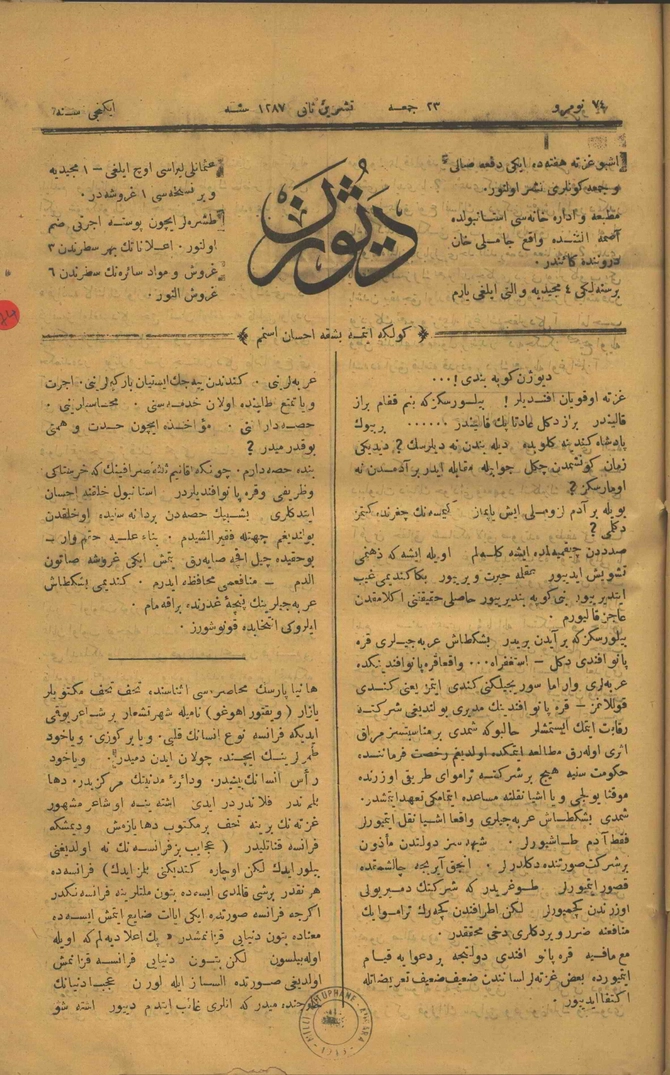 نومرو ٧٤
٢٣ جمعه تشرين ثانى ١٢٨٧ سنه
ايكنجى سنه
اشبو غزته هفته‌ده ايكى دفعه صالى
و جمعه كونلرى نشر اولنور.
مطبعه و اداره خانه‌سى استانبولده
آصمه التنده واقع جاملى خان
دروننده كائندر.
برسنه‌لكى ٤ مجيديه والتى ايلغى يارم
ديوژن
عثمانلى ليراسى اوچ ايلغى ١ مجيديه
وبر نسخه‌سى ١ غروشه‌در.
طشره‌لر ايچون پوسته اجرتى ضم
اولنور. اعلاناتك بهر سطرندن ٣
غروش و مواد سائره‌نك سطرندن ٦
غروش النور.
كولكه ايتمه بشقه احسان استمم
ديوژن كوپه بندى!...
غزته اوقويان افنديلر! بيلورسكزكه بنم قفام براز
قاليندر برازدكل عادتا پك قاليندر ...... بر بيوك
پادشاه كندينه كلوبده ديله بندن نه ديلرسك؟ ديديكى
زمان كونشمدن چكل جوابله مقابله ايدر بر آدمدن نه
اومارسكز؟
بويله بر آدم لزومسلى ايش ياپماز كيمسه‌نك چغرندن كچمز
دكلمى؟
صدددن چيقميه‌لم ايشته كله‌لم اويله ايشه كه ذهنمى
تشويش ايدييور عقله حيرت ويرييور بكا كنديمى غيب
ايتديرييور بنى كوپه بنديرييور حاصلى حقيقتنى اكلامقدن
عاجز قاليورم.
بيلورسكزكه بر آيدن بريدر بشكطاش عربه‌جيلرى قره
پانو افندى دكل — استغفرالله... واقعا قره پانو افندينكده
عربه‌لرى وار اما سوريجيلكنى كندى ايتمز يعنى كندى
قوللانمز — قره پانو افندينك مديرى بولنديغى شركته
رقابت ايتمك ايستمشلر حالبوكه شمدى بر مناسبتسز مراق
اثرى اوله‌رق مطالعه ايتمكده اولديغم رخصت فرماننده
حكومت سنيه هيچ بر شركته تراموای طريقى اوزرنده
موقتا يولجى ويا اشيا نقلنه مساعده ايتمامكى تعهد ايتمشدر.
شمدى بشكطاش عربه‌جيلرى واقعا اشيا نقل ايتميورلر
فقط آدم طاشيورلر. شبهه‌سز دولتدن مأذون
بر شركت صورتنده دكلدرلر. انجق آيريجه چالشمقده
قصور ايتميورلر. طوغريدر كه شركتك دميريولى
اوزرندن كچميورلر لكن اطرافندن كچه‌رك تراموايك
منافعنه ضرر ويردكلرى دخى محققدر.
مع مافيه قره پانو افندى دولتجه بر دعوا به قيام
ايتميورده بعض غزته‌لر لساندن ضعيف ضعيف تعريضاتله
اكتفا ايدييور.
عربه‌لرينى. كندندن ييه‌جك ايستيان باركيرلرينى. اجرت
و يا تمتع طلبنده اولان خدمه‌سنى. محاسبلرينى.
حصه‌دارانى. مؤاخذه ايچون حدت و همتى
يوقميدر؟
بنده حصه‌دارم. چونكه اقانيم ثلثه صرافينك كه خريستاكى
وظريفى وقره پانو افنديلردر استانبول خلقنه احسان
ايتدكلرى بشبيك حصه‌دن بر دانه‌سنده اوخلقدن
بولنديغم جهتله فقير الشيدم. بناء عليه حقم وار —
بوحقيده چيل اقچه صايه‌رق يتمش ايكى غروشه صاتون
الدم — منافعمى محافظه ايدرم. كنديمى بشكطاش
عربه‌جيلرينك پنجهٔ غدرنده براقه‌مام.
ايلروكى انتخابده قونوشورز.
هانيا پارسك محاصره‌سى اثناسنده تحف تحف مكتوبلر
يازار (ويقتور اهوغو) ناميله شهرتشعار بر شاعر يوقمى
ايديكه فرانسه نوع انسانك قلبى. ويا بركوزى. وياخود
طمرلرينك ايچنده جولان ايدن دميدر. وياخود
رأس انسانك بينيدر. ودائرهٔ مدنيتك مركزيدر. دها
بلم نه‌در فلاندر ديردى ايشته ينه او شاعر مشهور
غزته‌نك برينه تحف بر مكتوب دها يازمش وديمشكه
فرانسه قناتليدر (عجايب بز فرانسه‌نك نه اولديغنى
بيلورايدك لكن اوچار كنديكنى بلمزايدك) فرانسه‌ده
هر نقدر برشى قالمدى ايسه‌ده بتون ملتلر ينه فرانسه‌نكدر
اكرچه فرانسه صورتده ايكى ايالت ضايع ايتمش ايسه‌ده
معناده بتون دنيايى قزانمشدر * پك اعلا ديه‌لم كه اويله
اوله‌بيلسون لكن بتون دنيايى فرانسه قزانمش
اولديغى صورتده السساز ايله لورن عجبا دنيانك
خارجنده‌ميدر كه انلرى غائب ايتدم دييور ايشته شو